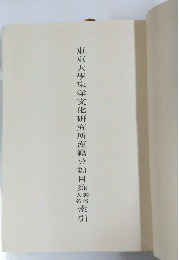 東京大學東洋文化研究所漢籍分類目録書名人名索引